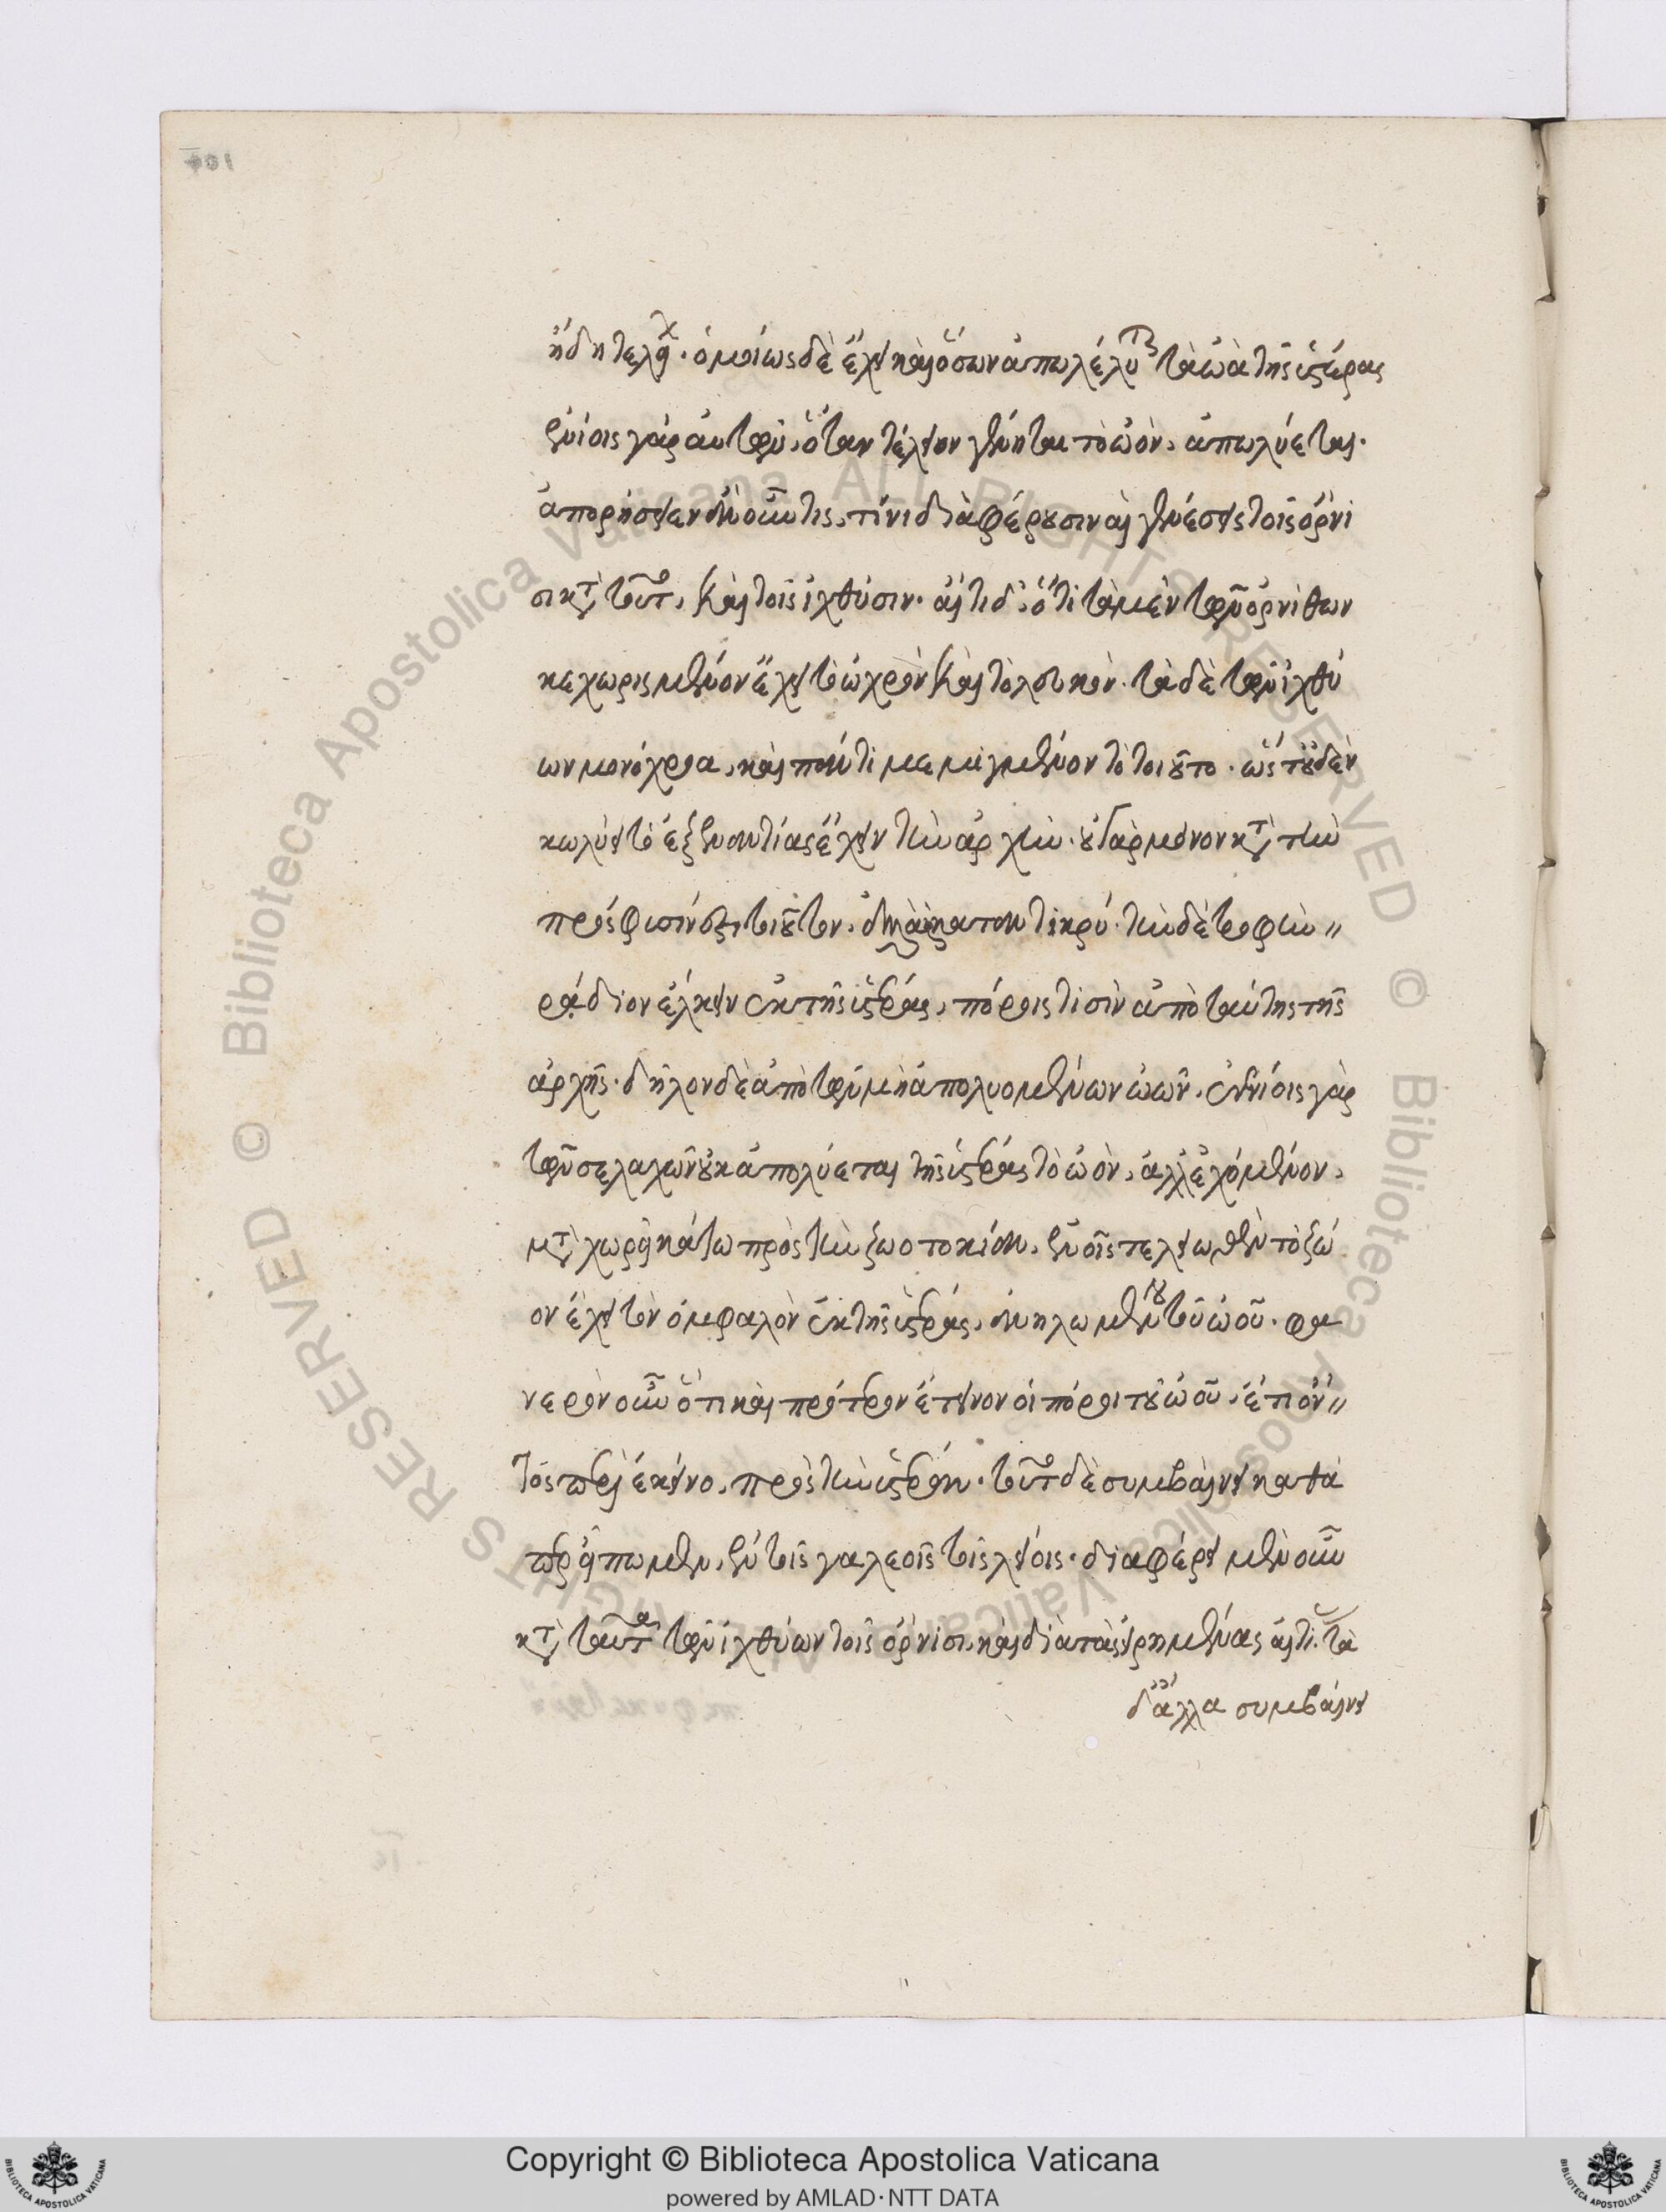 ἤδη τελείων. ὁμοίως δὲ ἔχει καὶ ὅσων ἀπολέλυται τὰ ὠὰ τῆς ὑστέρας
ἐνίοις γὰρ αὐτῶν, ὅταν τέλειον γένηται τὸ ὠὸν, ἀπολύεται.
ἀπορήσειεν ἂν οὖν τις, τίνι διαφέρουσιν αἱ γενέσεις τοῖς ὄρνι
σι κατὰ τοῦτο, καὶ τοῖς ἰχθύσιν. αἴτιον δ' ὅτι τὰ μὲν τῶν ὀρνίθων
κεχωρισμένον ἔχει τὸ ὠχρὸν καὶ τὸ λευκόν. τὰ δὲ τῶν ἰχθύ
ων μονόχροα, καὶ πάντη μεμιγμένον τὸ τοιοῦτο. ὥστ' οὐδὲν
κωλύει τὸ ἐξ ἐναντίας ἔχειν τὴν ἀρχήν. οὐ γὰρ μόνον κατὰ τὴν
πρόσφυσίν ἐστι τοιοῦτον, ἀλλὰ καταντικρύ. τὴν δὲ τροφὴν
ῥᾴδιον ἕλκειν ἐκ τῆς ὑστέρας, πόροις τισὶν ἀπὸ ταύτης τῆς
ἀρχῆς. δῆλον δὲ ἀπὸ τῶν μὴ ἀπολυομένων ὠῶν. ἐν ἐνίοις γὰρ
τῶν σελαχῶν οὐκ ἀπολύεται τῆς ὑστέρας τὸ ὠὸν, ἀλλ' ἐχόμενον,
μεταχωρεῖ κάτω πρὸς τὴν ζωοτοκίαν, ἐν οἷς τελειωθὲν τὸ ζῷ
ον ἔχει τὸν ὀμφαλὸν ἐκ τῆς ὑστέρας, ἀνηλωμένου τοῦ ὠοῦ. φα
νερὸν οὖν ὅτι καὶ πρότερον ἔτεινον οἱ πόροι τοῦ ὠοῦ, ἔτι ὄν
τος περὶ ἐκεῖνο, πρὸς τὴν ὑστέραν. τοῦτο δὲ συμβαίνει καθά
περ εἴπομεν, ἐν τοῖς γαλεοῖς τοῖς λείοις. διαφέρει μὲν οὖν
κατὰ ταῦτα τῶν ἰχθύων τοῖς ὄρνισι, καὶ διὰ τὰς εἰρημένας αἰτίας. τὰ
δ' ἄλλα συμβαίνει